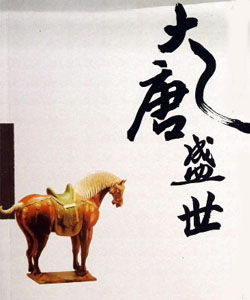 大唐盛世